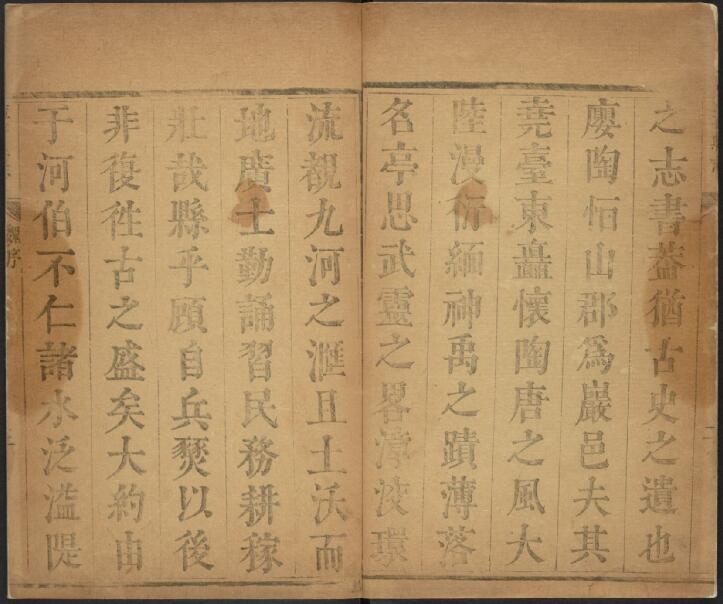 之志書葢猶古史之遺也
廮陶恒山郡爲巖邑夫其
堯臺東矗懷陶唐之風大
陸漫衍緬神禹之蹟薄落
名亭思武靈之畧漳洨環
流觀九河之滙且土沃而
地廣士勤誦習民務耕稼
壯哉縣乎顧自兵燹以後
非復徃古之盛矣大約由
于河伯不仁諸水泛滥隄
序